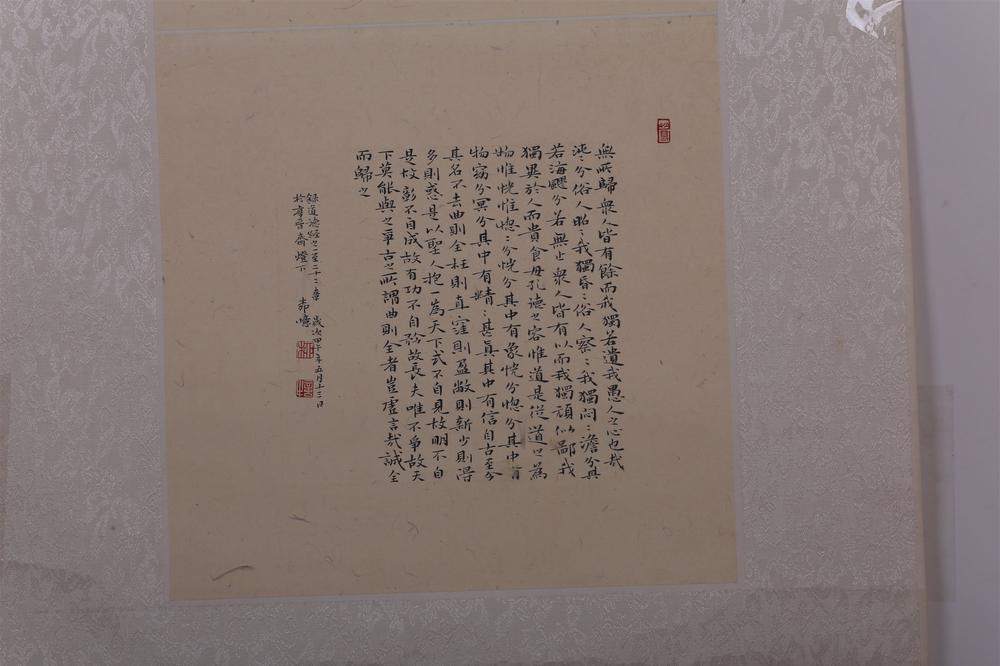 無所歸衆人皆有餘而我獨若遺我愚人之心也哉
沌〻兮俗人昭〻我獨昏〻俗人察〻我獨悶〻澹兮其
若海飂兮若無止衆人皆有以而我獨頑似鄙我
獨異於人而貴食母孔德之容惟道是從道之為
物惟恍惟惚〻兮恍兮其中有象恍兮惚兮其中有
物窈兮冥兮其中有精〻甚真其中有信自古至今
其名不去曲則全枉則直窪則盈敝則新少則得
多則惑是以聖人抱一為天下式不自見故明不自
是故彰不自成故有功不自矜故長夫唯不爭故天
下莫能與之爭古之所謂曲則全者豈虛言哉誠全
而歸之
錄道德經之一至二十二章 歲次甲午年五月十三日
於 齋燈下